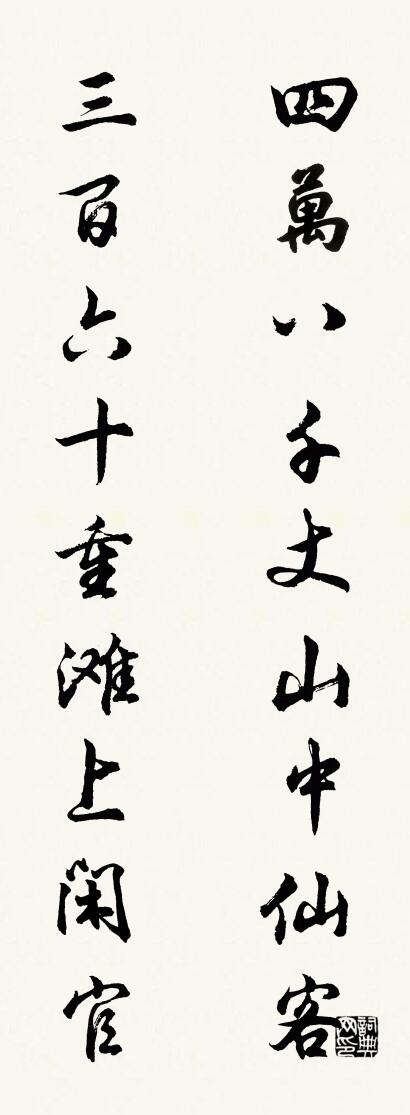 四萬八千丈山中仙客
三百六十重滩上闲官
詞典网印